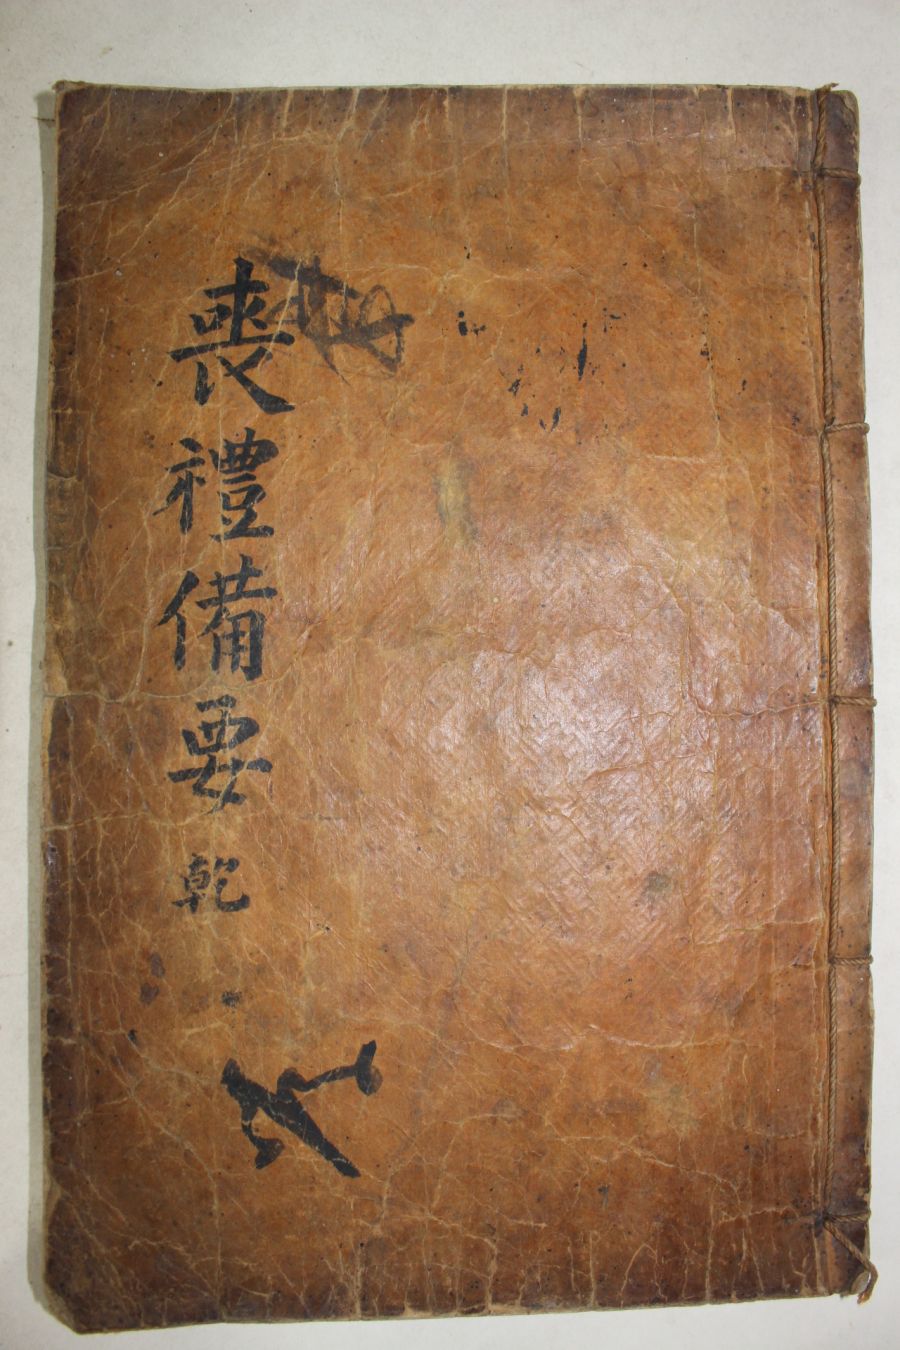 喪禮備要 乾